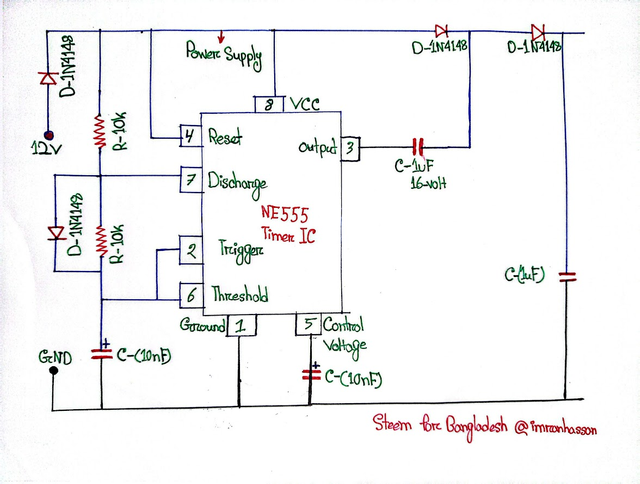 D-1N4148
12V
R-10k
Power Supply
D-1N4148
D-1N4148
8 VCC
4 Reset
Output 3
C-1uF
16-volt
7 Discharge
NE555
Timer IC
D-1N4148
R-10k
2 Trigger
6 Threshold
C-(1uF)
Ground 1
5 Control
Voltage
GND
+
C-(10nF)
+
C-(10nF)
Steem for Bangladesh @imranhassan